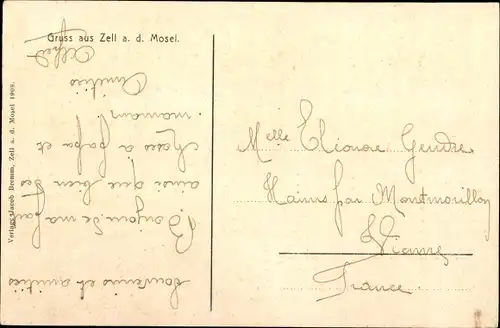 Gruss aus Zell a. d. Mosel.
Souvenirs et amitiés
Bonjour de ma part
ainsi que bien des
choses a papa et
maman.
Amitiés
Alfred
Melle Eléonore Gendre
Hains par Montmorillon
Vienne
France
Verlag Jacob Bremm, Zell a. d. Mosel 1903.